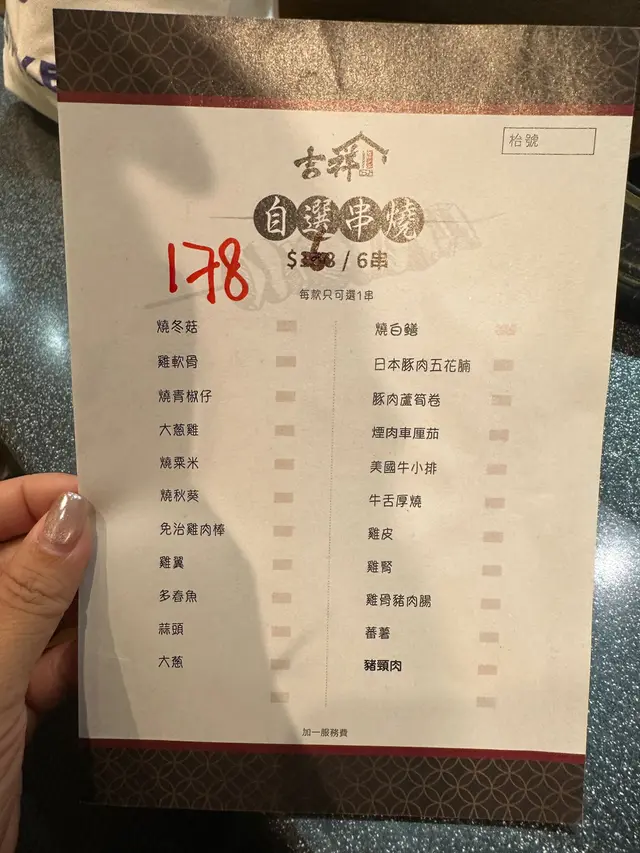 枱號
吉祥
自選串燒
178
/ 6串
每款只可選1串
燒冬菇
雞軟骨
燒青椒仔
大蔥雞
燒粟米
燒秋葵
免治雞肉棒
雞翼
多春魚
蒜頭
大蔥
燒白鱔
日本豚肉五花腩
豚肉蘆筍卷
煙肉車厘茄
美國牛小排
牛舌厚燒
雞皮
雞腎
雞骨豬肉腸
蕃薯
豬頸肉
加一服務費